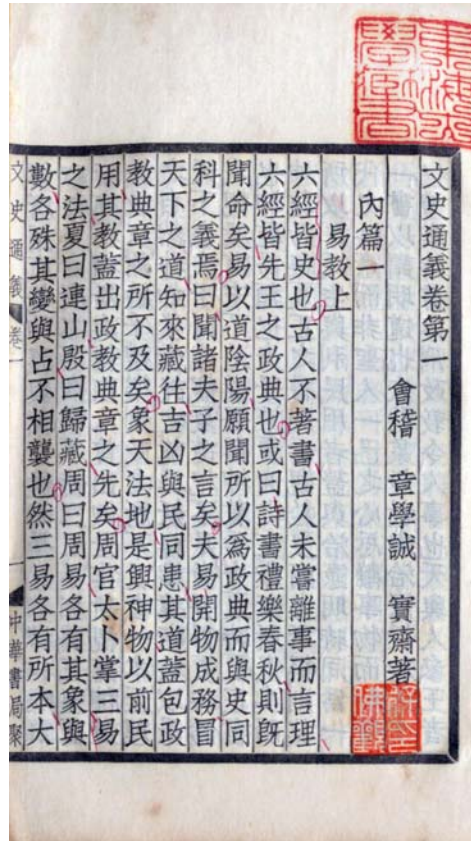 文史通義卷第一
會稽 章學誠 實齋著
內篇一
易教上
六經皆史也古人不著書古人未嘗離事而言理
六經皆先王之政典也或曰詩書禮樂春秋則既
聞命矣易以道陰陽願聞所以爲政典而與史同
科之義焉曰聞諸夫子之言矣夫易開物成務冒
天下之道知來藏往吉凶與民同患其道蓋包政
教典章之所不及矣象天法地是興神物以前民
用其教蓋出政教典章之先矣周官太卜掌三易
之法夏曰連山殷曰歸藏周曰周易各有其象與
數各殊其變與占不相襲也然三易各有所本大
文史通義 卷一
中華書局聚